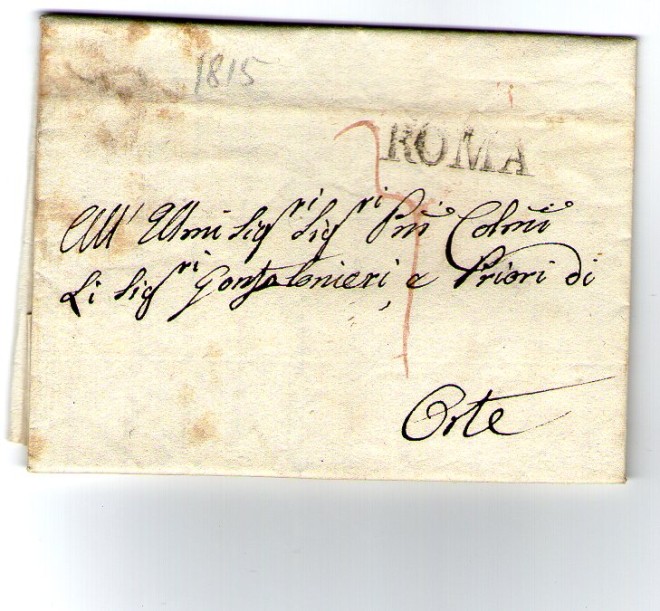 1815
ROMA
All' Illmi Sigri Sigri Pñi Colmi
Li Sigri Gonfalonieri e Priori di
Orte